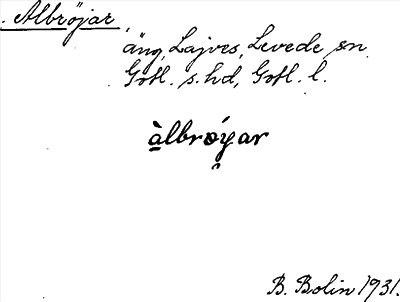 . Albröjar,
äng, Lajves, Levede sn
Gotl. s. hd, Gotl. l.
àlbrǿy̯ar
B. Bolin 1931.